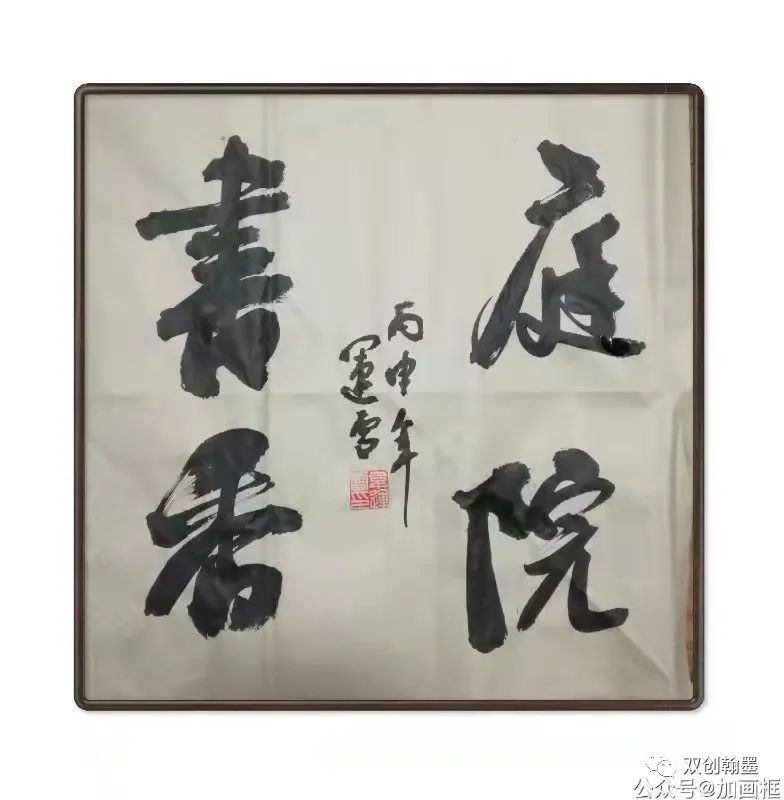 庭院
書香
丙申年
運雪
双创翰墨
公众号@加画框